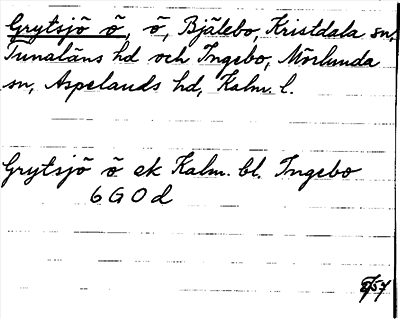 Grytsjö ö, ö, Bjälebo, Kristdala sn,
Tunaläns hd och Ingebo, Mörlunda
sn, Aspelands hd, Kalm. l.
Grytsjö ö ek Kalm. bl. Ingebo
6 G 0 d